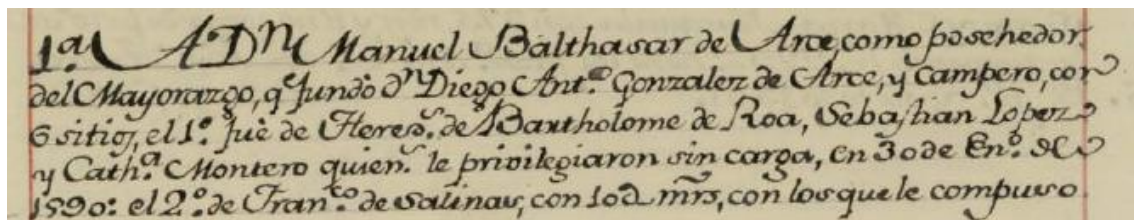 1ª. A Dn Manuel Balthasar de Arce, como posehedor
del Mayorazgo, qe fundò dn Diego Antº. Gonzalez de Arce, y Campero, con
6 sitios, el 1º. fuè de Hereds. de Bartholome de Roa, Sebastian Lopez
y Cathª. Montero quiens. le privilegiaron sin carga, en 30 de Enº. de
1590: el 2º. de Francº. de Salinas, con 10d mrs, con los que le compuso